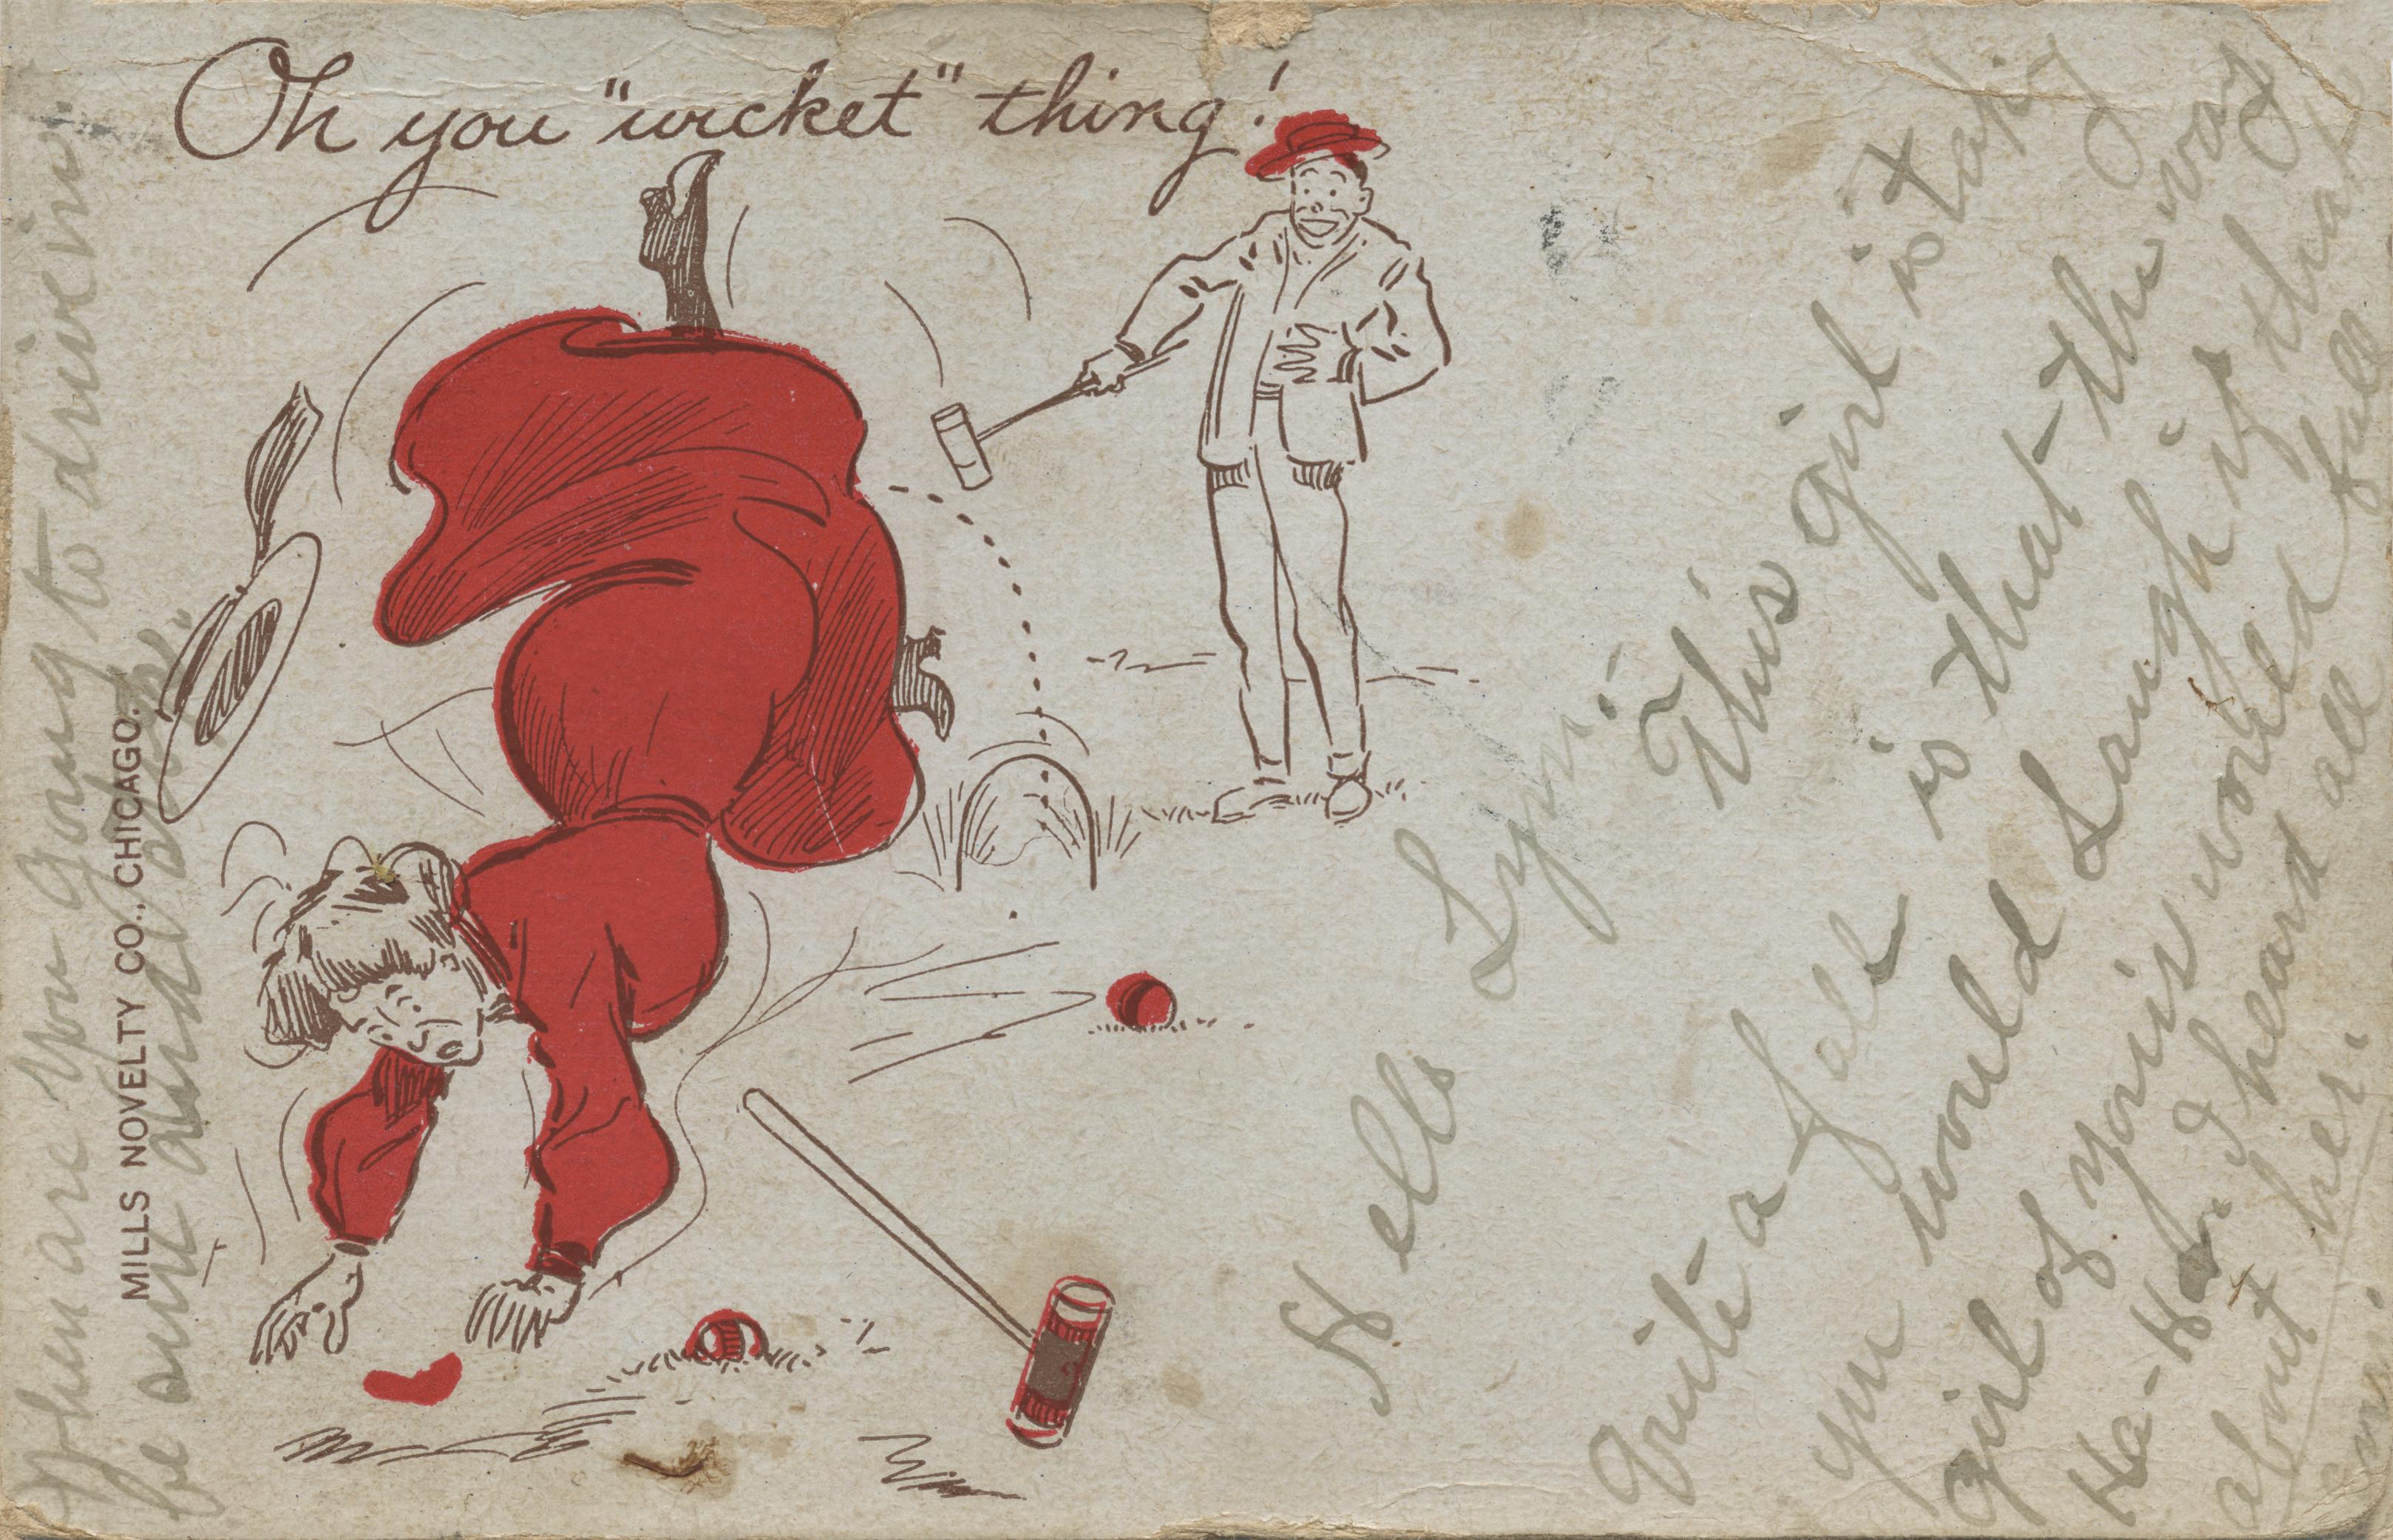 Oh you "wicket" thing!
MILLS NOVELTY CO., CHICAGO.
Hello Lyn.
This girl is taking
Quite a fall is that the way
you would Laugh if that
girl of yours would fall
Ha-Ha. I heard all
about her.
When are you going to drive in.
be sure and